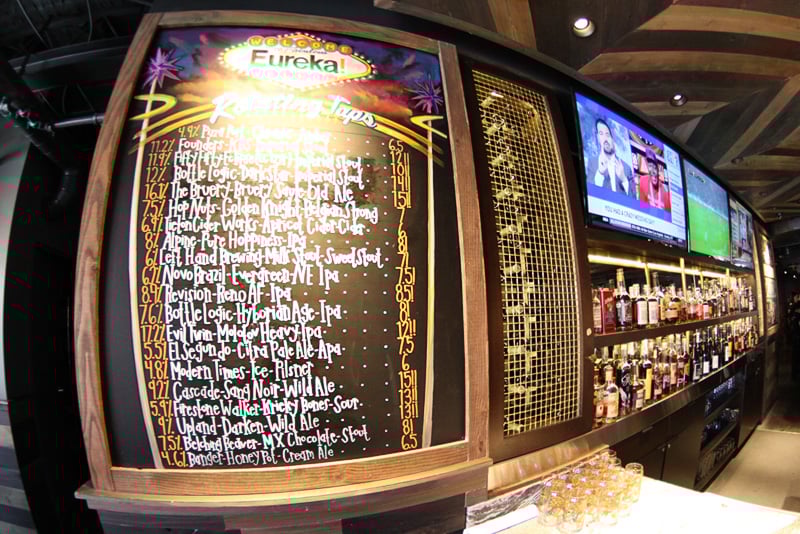 WELCOME
Eureka!
Rotating Taps
4.9%
6.5
11.2% Founders-
Imperial Stout 12
11.9% Fifty Fifty-
Imperial Stout 11
12% Bottle Logic-Darkstar-Imperial Stout 18
16.1% The Bruery-Bruery Sayle-Old Ale
7.5% Hop Nuts-Golden Knight-Belgian Strong 7
6.9% Tieton Cider Works-Apricot Cider-Cider
8% Alpine-Pure Hoppiness-Ipa 8
6% Left Hand Brewing-Milk Stout-Sweet Stout
6.2% Novo Brazil-Evergreen-NE Ipa 7.5
8.9% Revision-Reno AF-Ipa 8.5
7.6% Bottle Logic-Hyborian Age-Ipa 8
17.2% Evil Twin-Molotov Heavy-Ipa 12
5.5% El Segundo-Citra Pale Ale-Apa 7.5
4.8% Modern Times-Ice-Pilsner
9.2% Cascade-Sang Noir-Wild Ale 15
5.9% Firestone Walker-Krieky Bones-Sour 13
9% Upland-Darken-Wild Ale 13
7.5% Belching Beaver-MX Chocolate-Stout 8
4.6% Banger-Honey Pot-Cream Ale 6.5
YOU HAD A CRAZY WEDDING